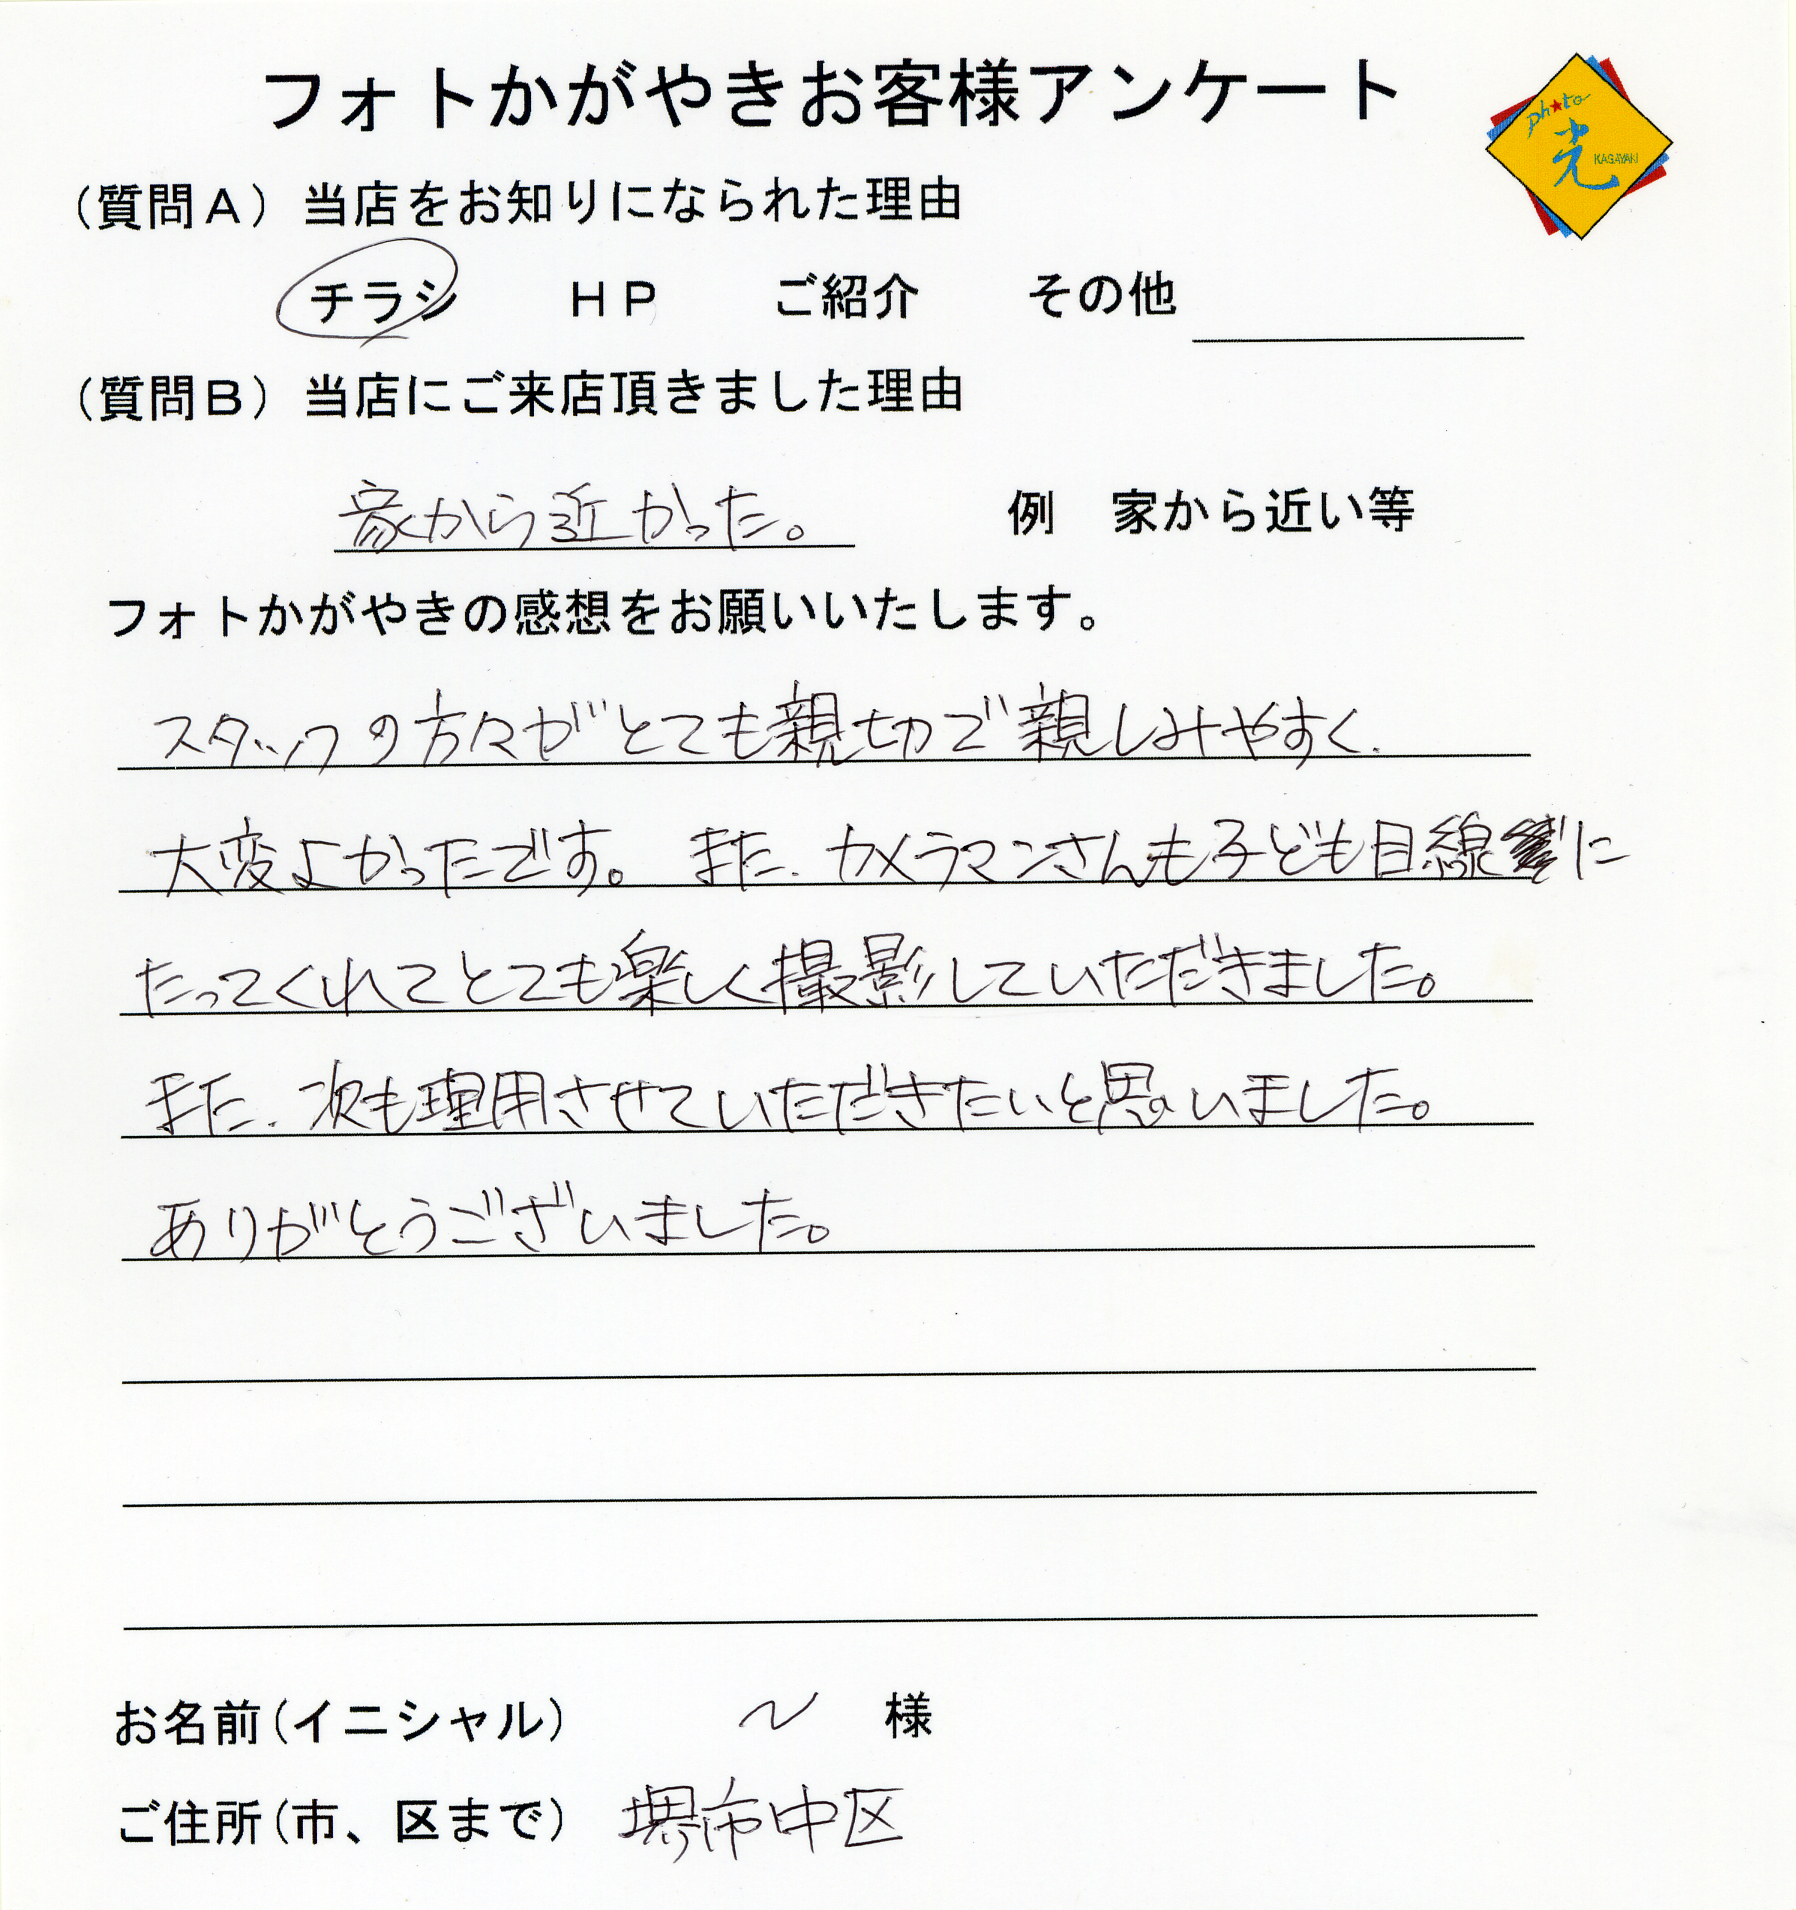 フォトかがやきお客様アンケート
photo
光
KAGAYAKI
(質問A) 当店をお知りになられた理由
チラシ HP ご紹介 その他
(質問B) 当店にご来店頂きました理由
家から近かった。 例 家から近い等
フォトかがやきの感想をお願いいたします。
スタッフの方々がとても親切で親しみやすく、
大変よかったです。また、カメラマンさんも子ども目線に
たってくれてとても楽しく撮影していただきました。
また、次も理用させていただきたいと思いました。
ありがとうございました。
お名前(イニシャル) N 様
ご住所(市、区まで) 堺市中区